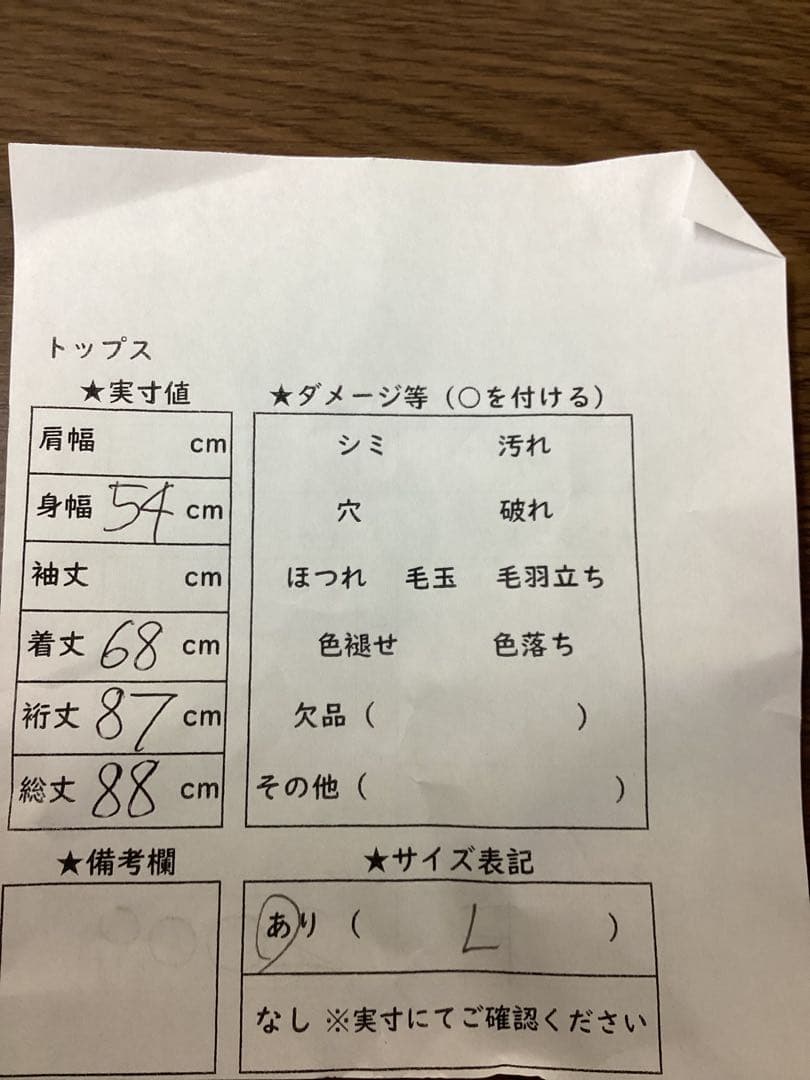 トップス
★実寸値
肩幅 cm
身幅 54 cm
袖丈 cm
着丈 68 cm
裄丈 87 cm
総丈 88 cm
★ダメージ等（○を付ける）
シミ 汚れ
穴 破れ
ほつれ 毛玉 毛羽立ち
色褪せ 色落ち
欠品（ ）
その他（ ）
★備考欄
★サイズ表記
あり（ L ）
なし ※実寸にてご確認ください